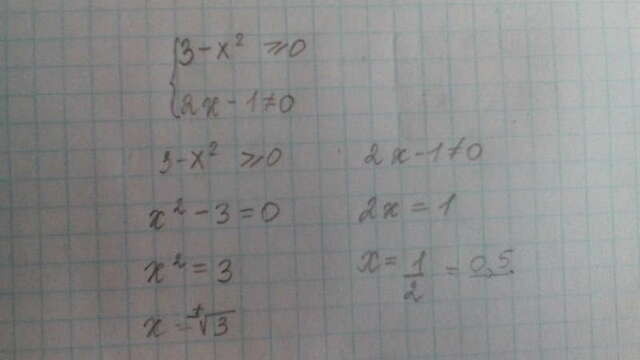 {3-x² ≥0
{2x-1≠0
3-x² ≥0
x²-3=0
x²=3
x=±√3
2x-1≠0
2x=1
x=1/2=0,5.